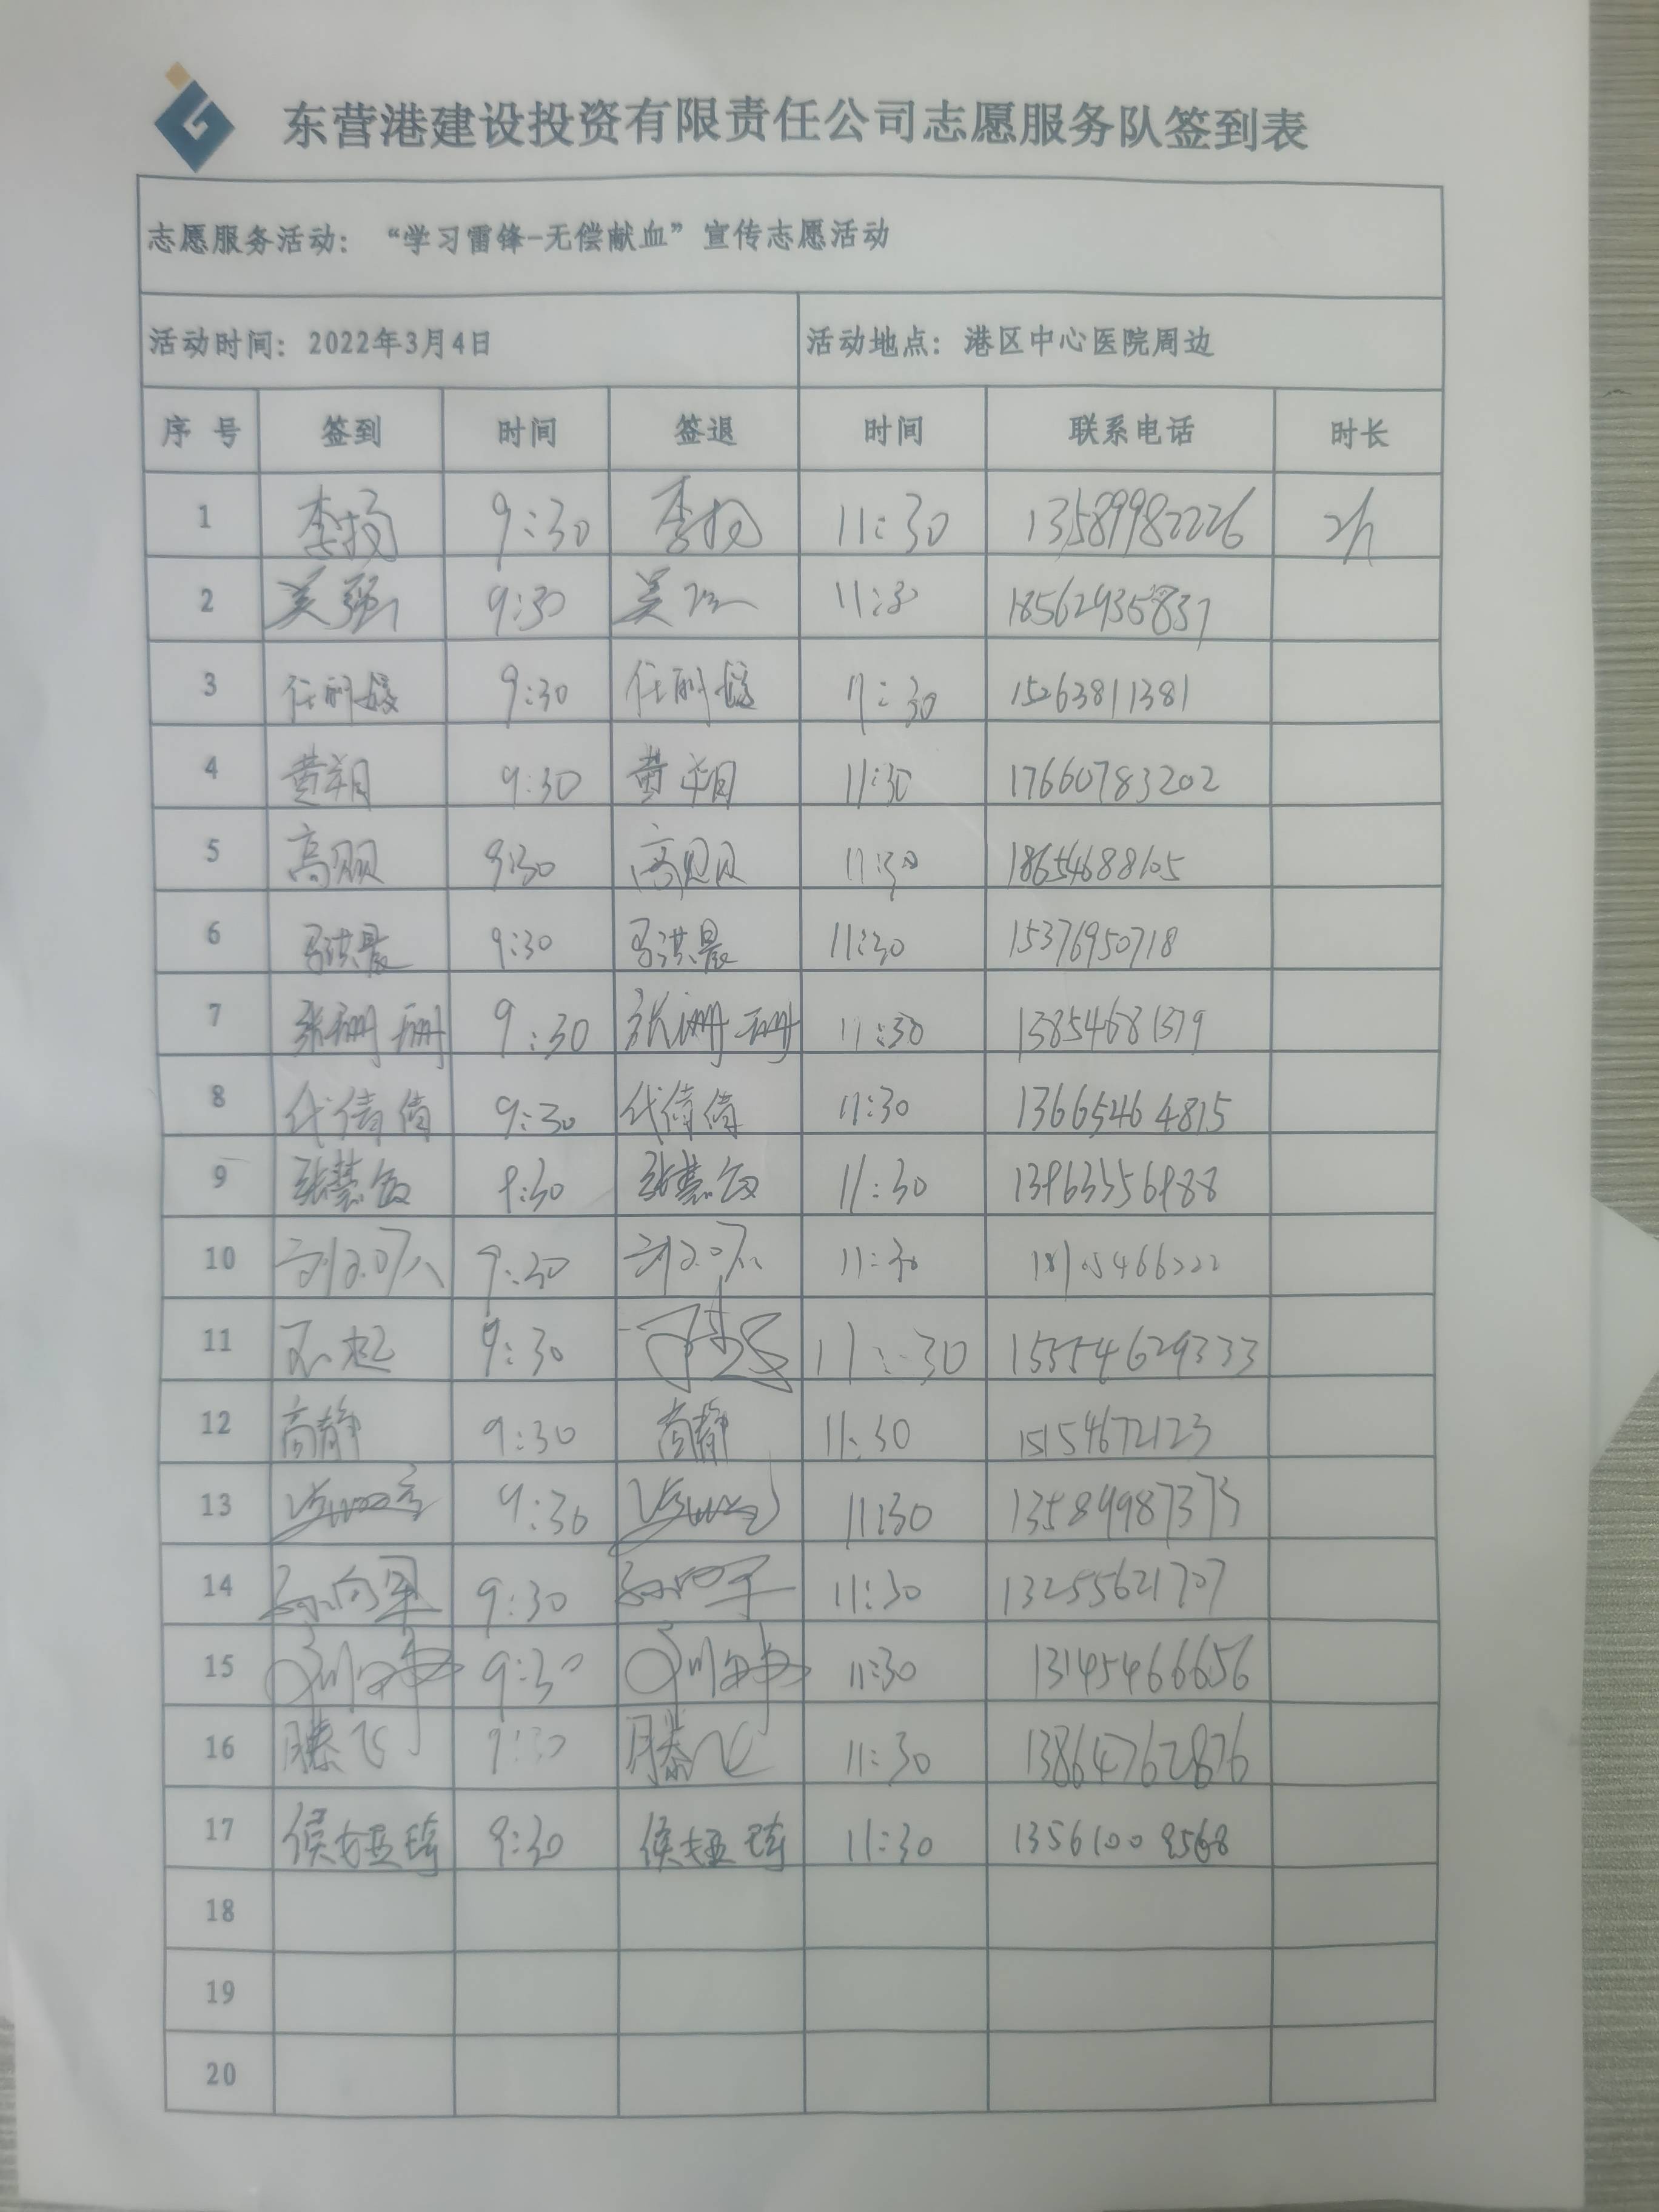 东营港建设投资有限责任公司志愿服务队签到表
志愿服务活动：“学习雷锋-无偿献血”宣传志愿活动
活动时间：2022年3月4日 活动地点：港区中心医院周边
序 号 签到 时间 签退 时间 联系电话 时长
1 李扬 9:30 李扬 11:30 13589982226 2h
2 吴强 9:30 吴强 11:30 18562935837
3 9:30 11:30 15263811381
4 黄翔 9:30 黄翔 11:30 17660783202
5 高 9:30 高 11:30 18654688105
6 马洪晨 9:30 马洪晨 11:30 15376950718
7 张珊珊 9:30 张珊珊 11:30 13854681379
8 代倩倩 9:30 代倩倩 11:30 13665464815
9 张慧敏 9:30 张慧敏 11:30 13963356988
10 9:30 11:30
11 9:30 11:30 15554629333
12 高静 9:30 高静 11:30 15154672123
13 9:30 11:30 13589987373
14 孙向军 9:30 孙向军 11:30 13255621707
15 9:30 11:30 13145466656
16 滕飞 9:30 滕飞 11:30 13864762876
17 侯娅琦 9:30 侯娅琦 11:30 13561008568
18
19
20